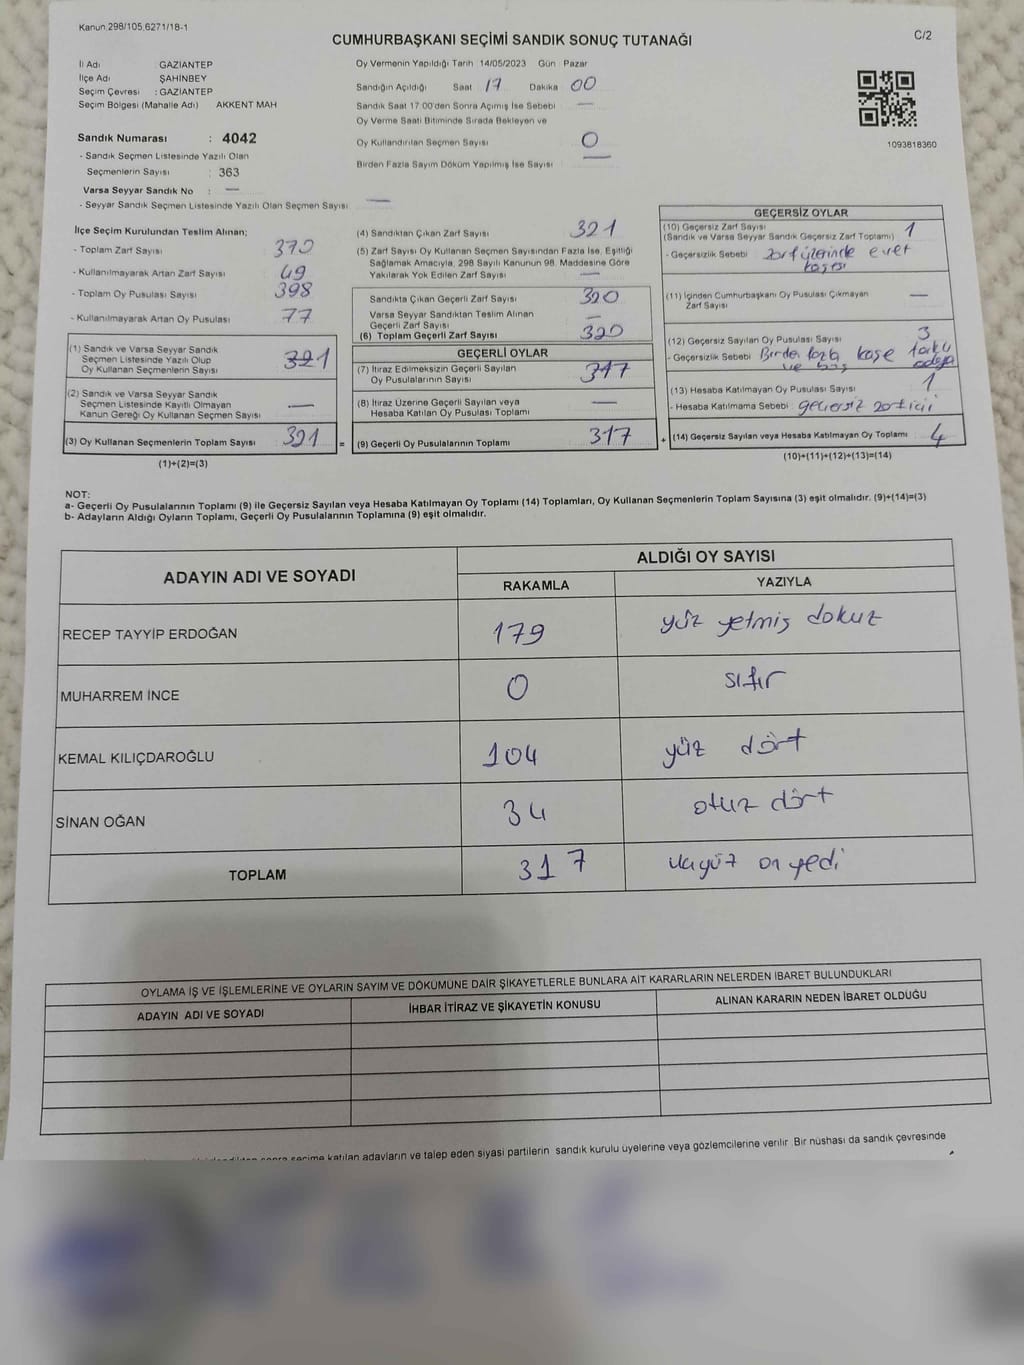 Kanun 298/105,6271/18-1
C/2
CUMHURBAŞKANI SEÇİMİ SANDIK SONUÇ TUTANAĞI
İl Adı GAZİANTEP
İlçe Adı ŞAHİNBEY
Seçim Çevresi : GAZİANTEP
Seçim Bölgesi (Mahalle Adı) AKKENT MAH
Sandık Numarası : 4042
- Sandık Seçmen Listesinde Yazılı Olan
Seçmenlerin Sayısı : 363
Varsa Seyyar Sandık No : —
- Seyyar Sandık Seçmen Listesinde Yazılı Olan Seçmen Sayısı —
Oy Vermenin Yapıldığı Tarih 14/05/2023 Gün Pazar
Sandığın Açıldığı Saat 17 Dakika 00
Sandık Saat 17:00'den Sonra Açımış İse Sebebi —
Oy Verme Saati Bitiminde Sırada Bekleyen ve
Oy Kullandırılan Seçmen Sayısı 0
Birden Fazla Sayım Döküm Yapılmış İse Sayısı —
1093818360
İlçe Seçim Kurulundan Teslim Alınan;
- Toplam Zarf Sayısı 370
- Kullanılmayarak Artan Zarf Sayısı 49
- Toplam Oy Pusulası Sayısı 398
- Kullanılmayarak Artan Oy Pusulası 77
(1) Sandık ve Varsa Seyyar Sandık
Seçmen Listesinde Yazılı Olup
Oy Kullanan Seçmenlerin Sayısı 321
(2) Sandık ve Varsa Seyyar Sandık
Seçmen Listesinde Kayıtlı Olmayan
Kanun Gereği Oy Kullanan Seçmen Sayısı —
(3) Oy Kullanan Seçmenlerin Toplam Sayısı 321 =
(1)+(2)=(3)
(4) Sandıktan Çıkan Zarf Sayısı 321
(5) Zarf Sayısı Oy Kullanan Seçmen Sayısından Fazla İse, Eşitliği
Sağlamak Amacıyla, 298 Sayılı Kanunun 98. Maddesine Göre
Yakılarak Yok Edilen Zarf Sayısı —
Sandıkta Çıkan Geçerli Zarf Sayısı 320
Varsa Seyyar Sandıktan Teslim Alınan
Geçerli Zarf Sayısı —
(6) Toplam Geçerli Zarf Sayısı 320
GEÇERLİ OYLAR
(7) İtiraz Edilmeksizin Geçerli Sayılan
Oy Pusulalarının Sayısı 317
(8) İtiraz Üzerine Geçerli Sayılan veya
Hesaba Katılan Oy Pusulası Toplamı —
(9) Geçerli Oy Pusulalarının Toplamı 317 +
GEÇERSİZ OYLAR
(10) Geçersiz Zarf Sayısı
(Sandık ve Varsa Seyyar Sandık Geçersiz Zarf Toplamı) 1
- Geçersizlik Sebebi zarf üzerinde evet
kaşesi
(11) İçinden Cumhurbaşkanı Oy Pusulası Çıkmayan
Zarf Sayısı —
(12) Geçersiz Sayılan Oy Pusulası Sayısı 3
- Geçersizlik Sebebi Birden fazla kaşe farklı
ve boş adaya
(13) Hesaba Katılmayan Oy Pusulası Sayısı 1
- Hesaba Katılmama Sebebi : geçersiz zarf içi
(14) Geçersiz Sayılan veya Hesaba Katılmayan Oy Toplamı 4
(10)+(11)+(12)+(13)=(14)
NOT:
a- Geçerli Oy Pusulalarının Toplamı (9) ile Geçersiz Sayılan veya Hesaba Katılmayan Oy Toplamı (14) Toplamları, Oy Kullanan Seçmenlerin Toplam Sayısına (3) eşit olmalıdır. (9)+(14)=(3)
b- Adayların Aldığı Oyların Toplamı, Geçerli Oy Pusulalarının Toplamına (9) eşit olmalıdır.
ADAYIN ADI VE SOYADI
ALDIĞI OY SAYISI
RAKAMLA YAZIYLA
RECEP TAYYİP ERDOĞAN 179 yüz yetmiş dokuz
MUHARREM İNCE 0 sıfır
KEMAL KILIÇDAROĞLU 104 yüz dört
SİNAN OĞAN 34 otuz dört
TOPLAM 317 üçyüz on yedi
OYLAMA İŞ VE İŞLEMLERİNE VE OYLARIN SAYIM VE DÖKÜMÜNE DAİR ŞİKAYETLERLE BUNLARA AİT KARARLARIN NELERDEN İBARET BULUNDUKLARI
ADAYIN ADI VE SOYADI İHBAR İTİRAZ VE ŞİKAYETİN KONUSU ALINAN KARARIN NEDEN İBARET OLDUĞU
sonra seçime katılan adayların ve talep eden siyasi partilerin sandık kurulu üyelerine veya gözlemcilerine verilir. Bir nüshası da sandık çevresinde